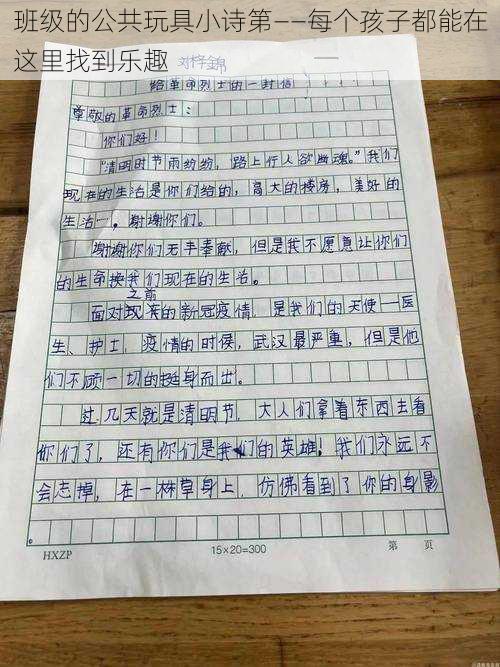 班级的公共玩具小诗第——每个孩子都能在
这里找到乐趣
给革命烈士的一封信
尊敬的革命烈士：
你们好！
“清明时节雨纷纷，路上行人欲断魂。”我们
现在的生活是你们给的，高大的楼房，美好的
生活一，谢谢你们。
谢谢你们无丰奉献，但是我不愿意让你们
的生命换我们现在的生活。
之前
面对现来的新冠疫情，是我们的天使一医
生、护士，疫情的时侯，武汉最严重，但是他
们不顾一切的挺身而出。
过几天就是清明节，大人们拿着东西去看
你们了，还有你们是我们的英雄！我们永远不
会忘掉，在一林草身上，仿佛看到了你的身影
HXZP
15×20=300
第 页